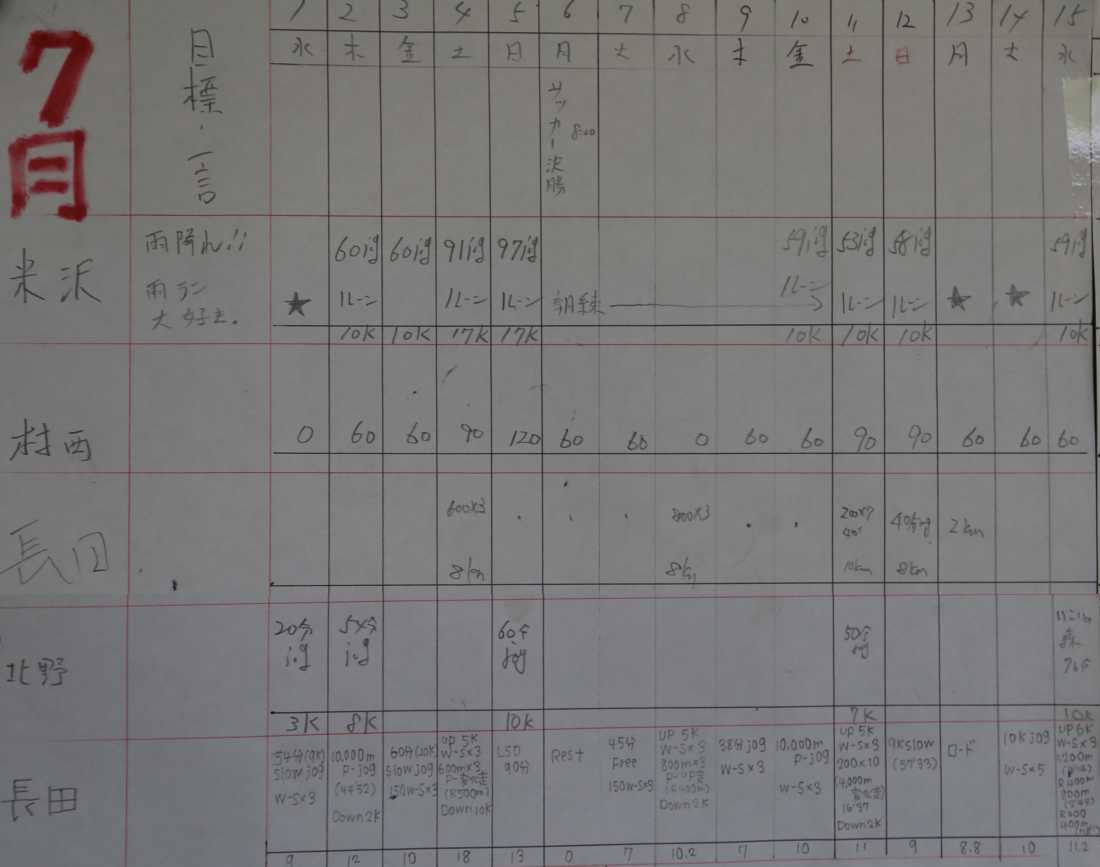 7月
目標・一言
1 2 3 4 5 6 7 8 9 10 11 12 13 14 15
水 木 金 土 日 月 火 水 木 金 土 日 月 火 水
サッカー決勝 8:00
米沢
雨降れ!!
雨ラン
大好き。
60jog 60jog 91jog 97jog 59jog 53jog 58jog 59jog
★ 1レーン 1レーン 1レーン 朝練 1レーン 1レーン 1レーン ★ ★ 1レーン
10K 10K 17K 17K 10K 10K 10K 10K
村西
0 60 60 90 120 60 60 0 60 60 90 90 60 60 60
長田
600×3 800×3 200×7 40分jog 2km
8km 8km 10km 8km
北野
20分 54分 60分 50分
jog jog jog jog
3K 8K 10K 7K 10K
長田
54分(9K)
slow jog
W-S×3
9
10,000m
P-jog
(44'32)
Down2K
12
60分(10K)
slow jog
150W-S×3
10
UP 5K
W-S×3
600m×3
(8500m)
Down10K
18
LSD
90分
13
Rest
0
45分
Free
150W-S×3
7
UP 5K
W-S×3
800m×3
Down2K
10.2
38分jog
W-S×3
7
10,000m
P-jog
W-S×3
10
UP 5K
W-S×3
200×10
16'37
Down2K
11
9Kslow
(57'33)
9
ロード
8.8
10K jog
W-S×5
10
UP 6K
W-S×3
1200m
11.2